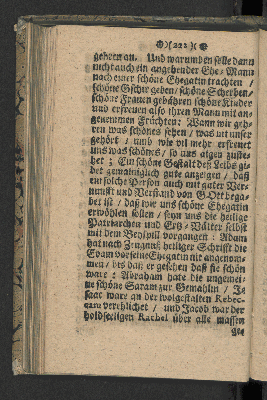 (222)
gehen an. Und warumben solle dann
nicht auch ein angehender Ehe-Mann
nach einer schöne Ehegatin trachten /
schöne Gschir geben schöne Scherben /
schöne Frauen gebähren schöne Kinder
und erfreuen also ihren Mann mit an-
genemmen Früchten: Wann wir geh-
ren was schönes sehen / was uit unser
gehört / und wie vil mehr erfreuet
uns was schönes / so uns aigen zuste-
het ; Ein schöne Gestalt des Leibs gi-
bet gemainiglich gute anzeigen / daß
ein solche Person auch mit guter Ver-
nunfft und Verstand von G.Ott bega-
bet ist / daß wir uns schöne Ehegatin
erwöhlen sollen / seyn uns die heilige
Patriarchen und Ertz-Vätter selbst
mit dem Beyspill vorgangen : Adam
hat nach Zeugnuß heiliger Schrifft die
Evam vor seine Ehegatin nit angenom-
men / bis daß er gesehen daß sie schön
ware : Abraham hate die ungemei-
ne schöne Saram zur Gemahlin / I-
saac ware an der wolgestalten Rebec-
cam verehlichet / und Jacob war der
holdseeligen Rachel über alle massen